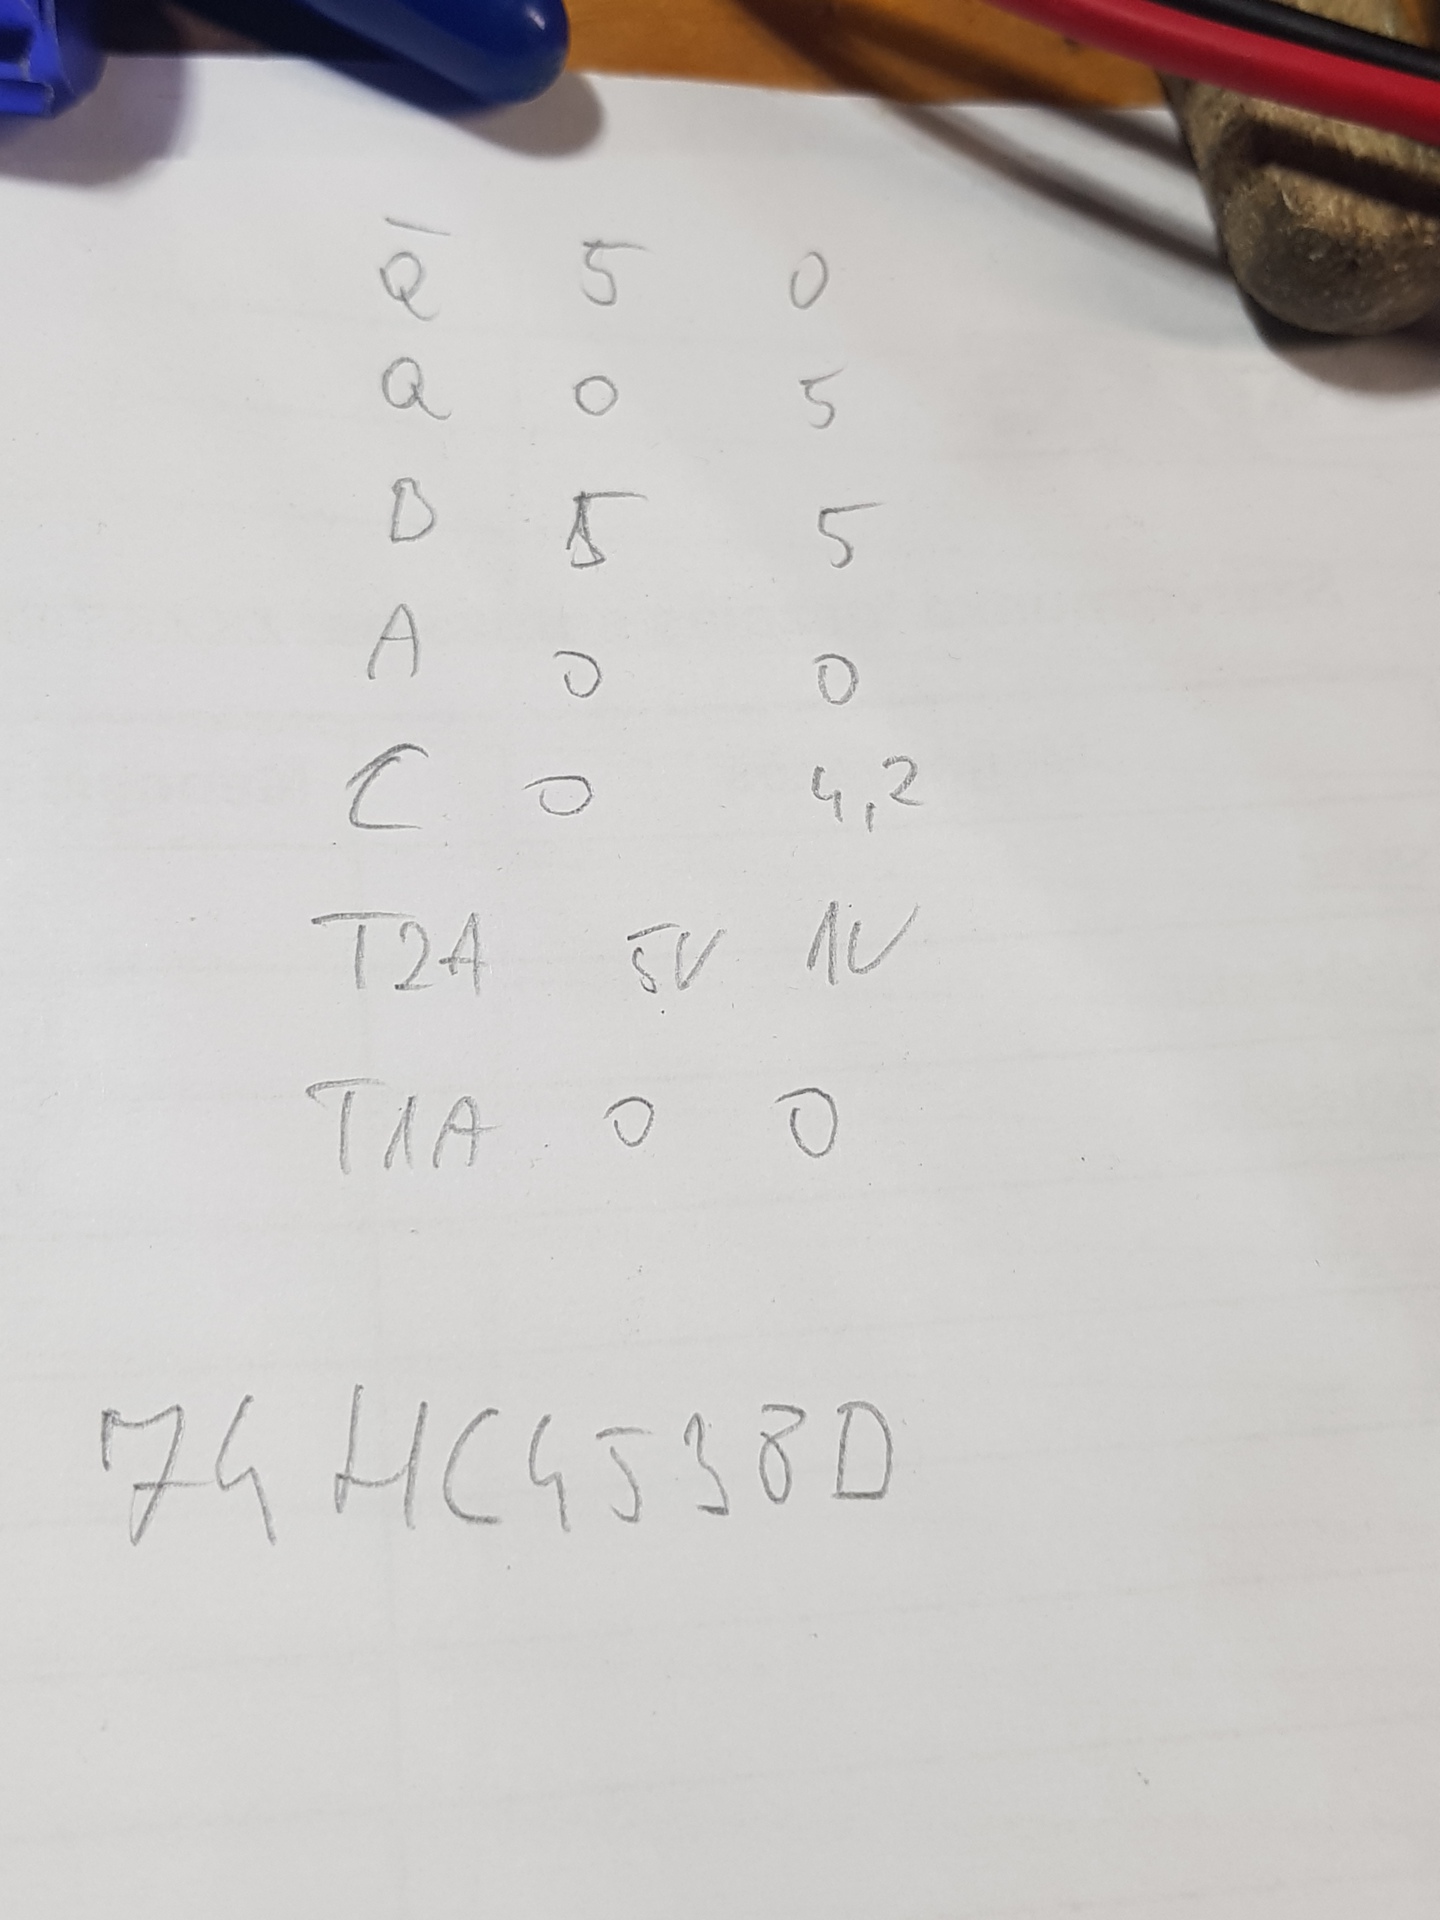 Q̅ 5 0
Q 0 5
B 5 5
A 0 0
C 0 4,2
T2A 5V 1V
T1A 0 0
74HC4538D